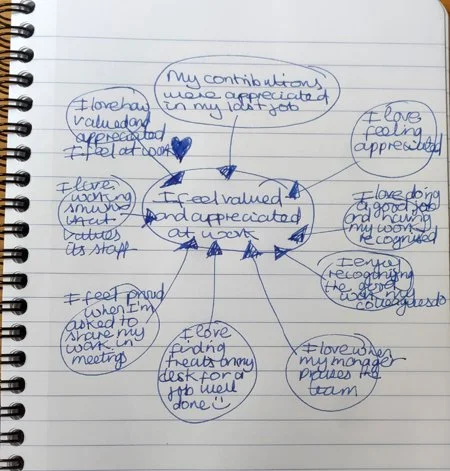 My contributions
were appreciated
in my last job
I love how
valued and
appreciated
I feel at work
I love
feeling
appreciated
I love
working
somewhere
that
values
its staff
I feel valued
and appreciated
at work
I love doing
a good job
and having
my work
recognised
I enjoy
recognising
the good
work my
colleagues do
I feel proud
when I'm
asked to
share my
work in
meetings
I love
finding
treats on my
desk for a
job well
done
I love when
my manager
praises the
team